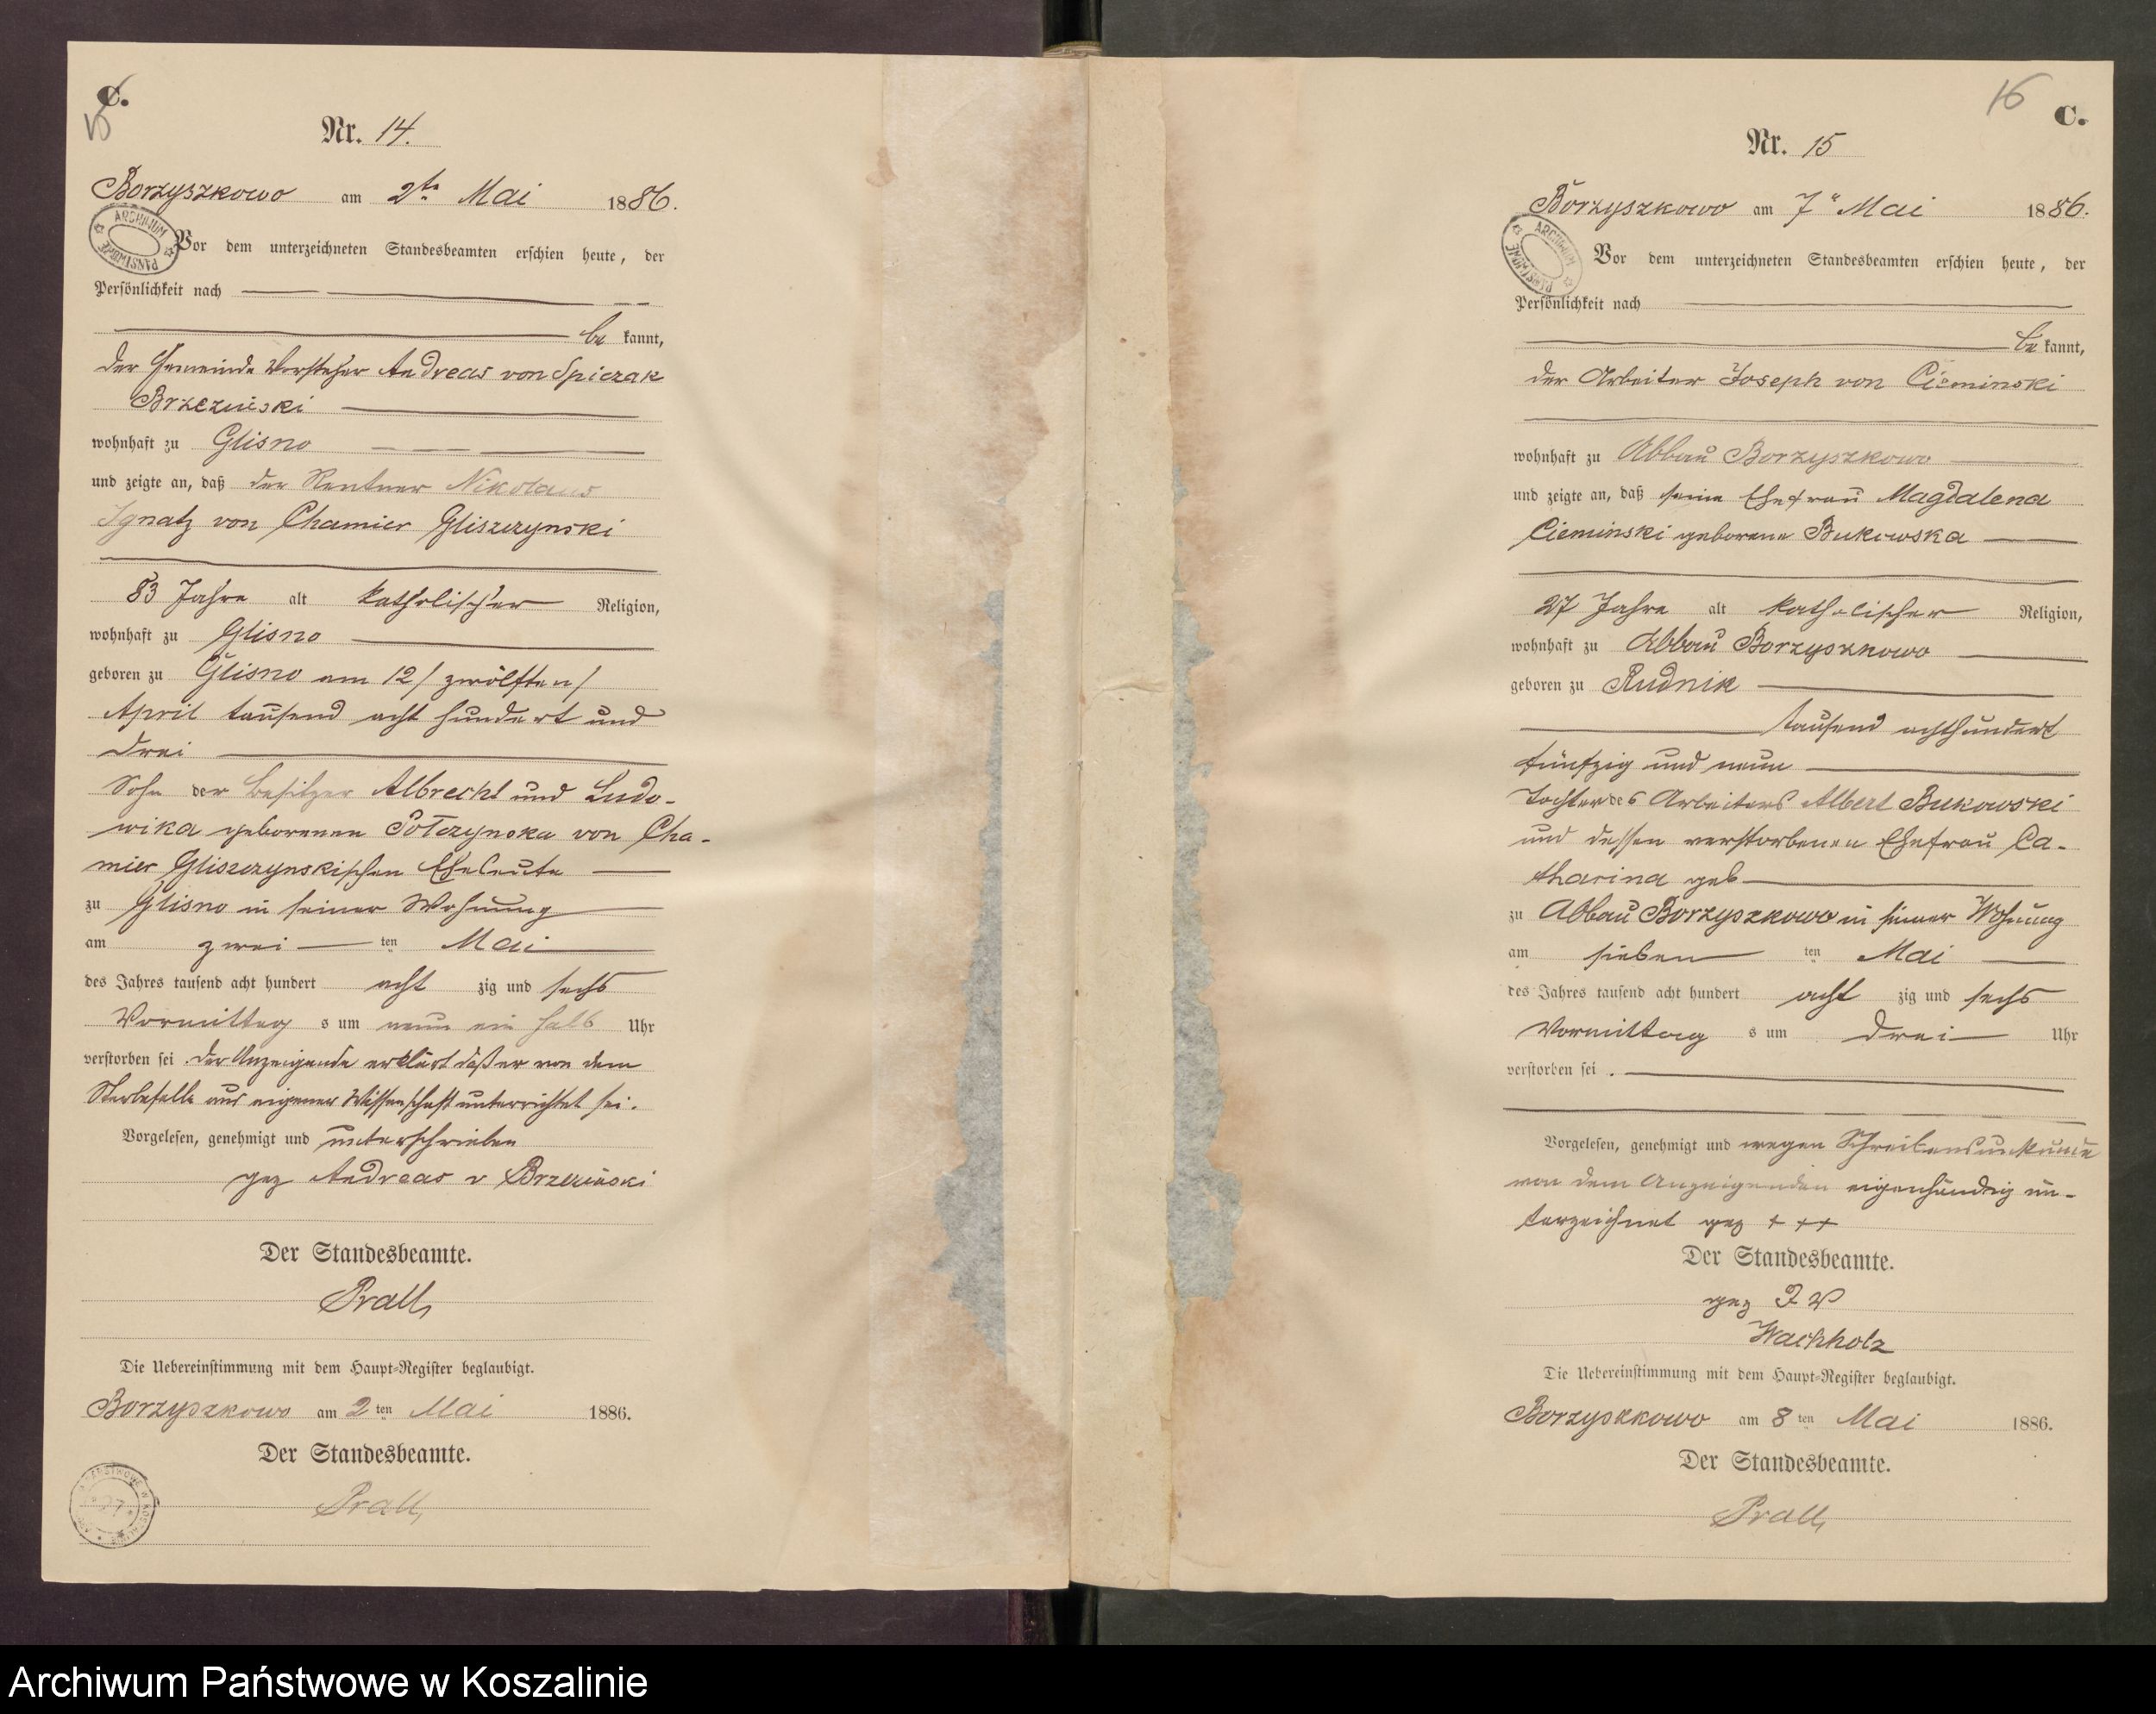 C.
15
Nr. 14.
Borzyszkowo am 2ten Mai 1886.
ARCHIWUM PAŃSTWOWE
Vor dem unterzeichneten Standesbeamten erschien heute, der
Persönlichkeit nach
be kannt,
der Gemeinde Vorsteher Andreas von Spiczak
Brzezinski
wohnhaft zu Glisno
und zeigte an, daß der Rentner Nikolaus
Ignatz von Chamier Gliszczynski
83 Jahre alt katholischer Religion,
wohnhaft zu Glisno
geboren zu Glisno am 12/ zwölften/
April tausend acht hundert und
drei
Sohn der Besitzer Albrecht und Ludo-
wika geborenen Połczynska von Cha-
mier Gliszczynskischen Eheleute
zu Glisno in seiner Wohnung
am zwei ten Mai
des Jahres tausend acht hundert acht zig und sechs
Vormittag s um neun ein halb Uhr
verstorben sei. Der Anzeigende erklärt daß er von dem
Sterbefalle aus eigener Wissenschaft unterrichtet sei.
Vorgelesen, genehmigt und unterschrieben
gez Andreas v Brzezinski
Der Standesbeamte.
Prall
Die Uebereinstimmung mit dem Haupt-Register beglaubigt.
Borzyszkowo am 2 ten Mai 1886.
Der Standesbeamte.
Prall
16
C.
Nr. 15
Borzyszkowo am 7" Mai 1886.
ARCHIWUM PAŃSTWOWE
Vor dem unterzeichneten Standesbeamten erschien heute, der
Persönlichkeit nach
be kannt,
der Arbeiter Joseph von Cieminski
wohnhaft zu Abbau Borzyszkowo
und zeigte an, daß seine Ehefrau Magdalena
Cieminski geborene Bukowska
27 Jahre alt katholischer Religion,
wohnhaft zu Abbau Borzyszkowo
geboren zu Rudnik
tausend achthundert
fünfzig und neun
Tochter des Arbeiters Albert Bukowski
und dessen verstorbenen Ehefrau Ca-
tharina geb
zu Abbau Borzyszkowo in seiner Wohnung
am sieben ten Mai
des Jahres tausend acht hundert acht zig und sechs
Vormittag s um drei Uhr
verstorben sei.
Vorgelesen, genehmigt und wegen Schreibensunkunde
von dem Anzeigenden eigenhändig un-
terzeichnet gez + + +
Der Standesbeamte.
gez I V
Wachholz
Die Uebereinstimmung mit dem Haupt-Register beglaubigt.
Borzyszkowo am 8 ten Mai 1886.
Der Standesbeamte.
Prall
Archiwum Państwowe w Koszalinie